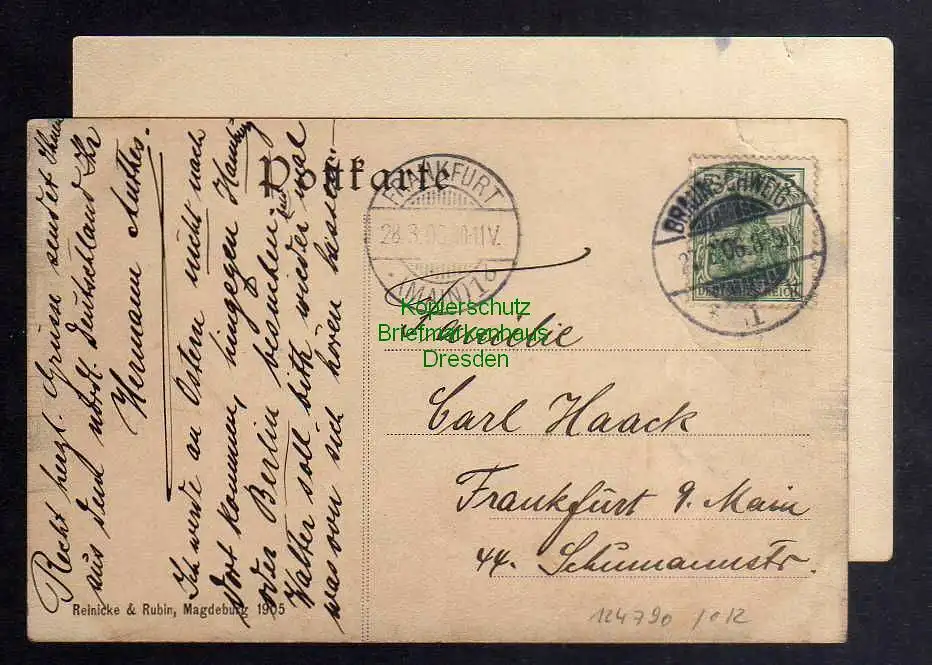 Postkarte
FRANKFURT
28.3.06.10-11V.
(MAIN) 1
BRAUNSCHWEIG
1
Kopierschutz
Briefmarkenhaus
Dresden
Familie
Carl Haack
Frankfurt a. Main
44. Schumannstr.
Recht herzl. Grüße sendet Ihnen
aus dem nördl. Deutschland Ihr
Hermann Anthes.
Ich werde an Ostern nicht nach
dort kommen, hingegen
oder Berlin besuchen.
Walter soll bitte wieder mal
was von sich hören lassen.
Reinicke & Rubin, Magdeburg 1905
124790 / 012